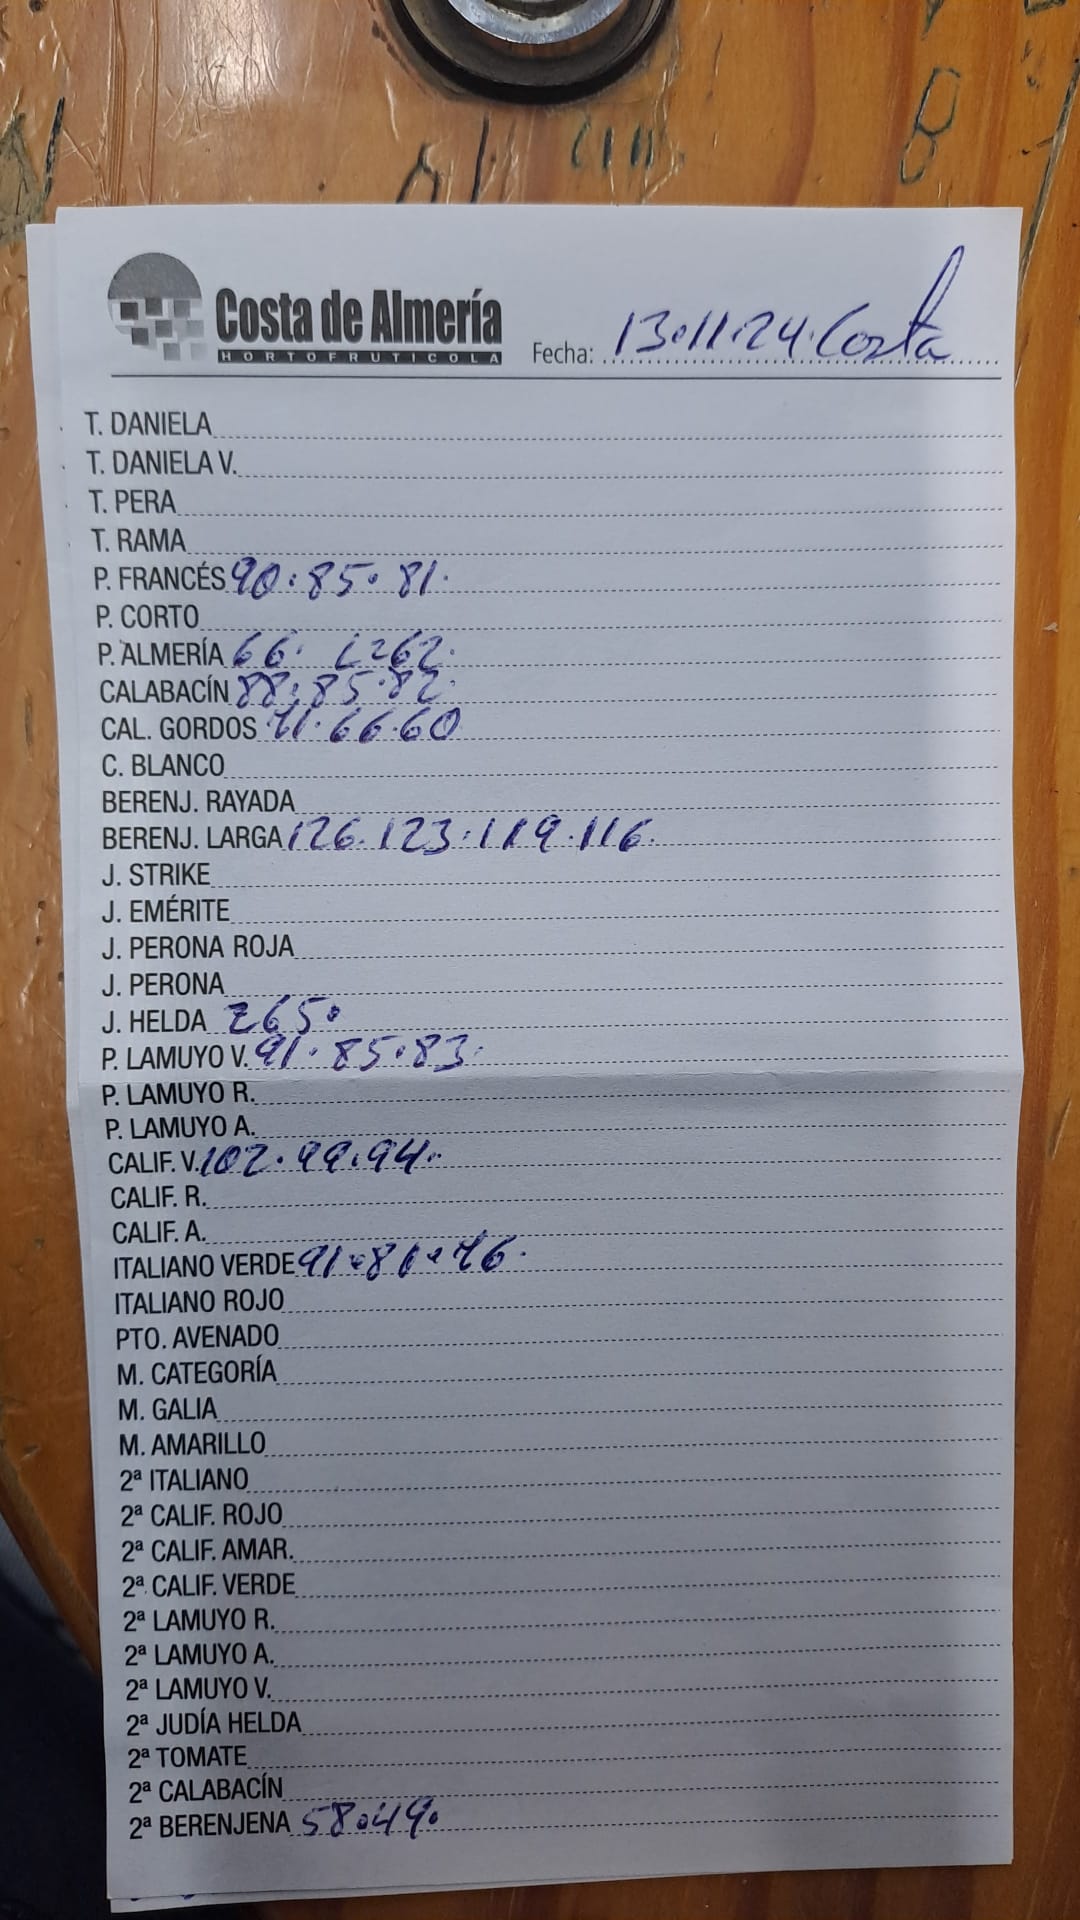 Costa de Almería
HORTOFRUTICOLA
Fecha: 13.11.24. Costa
T. DANIELA
T. DANIELA V.
T. PERA
T. RAMA
P. FRANCÉS 90. 85. 81.
P. CORTO
P. ALMERÍA 66. L=62.
CALABACÍN 88. 85. 82.
CAL. GORDOS 71. 66. 60
C. BLANCO
BERENJ. RAYADA
BERENJ. LARGA 126. 123. 119. 116.
J. STRIKE
J. EMÉRITE
J. PERONA ROJA
J. PERONA
J. HELDA 265.
P. LAMUYO V. 91. 85. 83.
P. LAMUYO R.
P. LAMUYO A.
CALIF. V. 102. 99. 94.
CALIF. R.
CALIF. A.
ITALIANO VERDE 91. 81. 76.
ITALIANO ROJO
PTO. AVENADO
M. CATEGORÍA
M. GALIA
M. AMARILLO
2ª ITALIANO
2ª CALIF. ROJO
2ª CALIF. AMAR.
2ª CALIF. VERDE
2ª LAMUYO R.
2ª LAMUYO A.
2ª LAMUYO V.
2ª JUDÍA HELDA
2ª TOMATE
2ª CALABACÍN
2ª BERENJENA 58. 49.